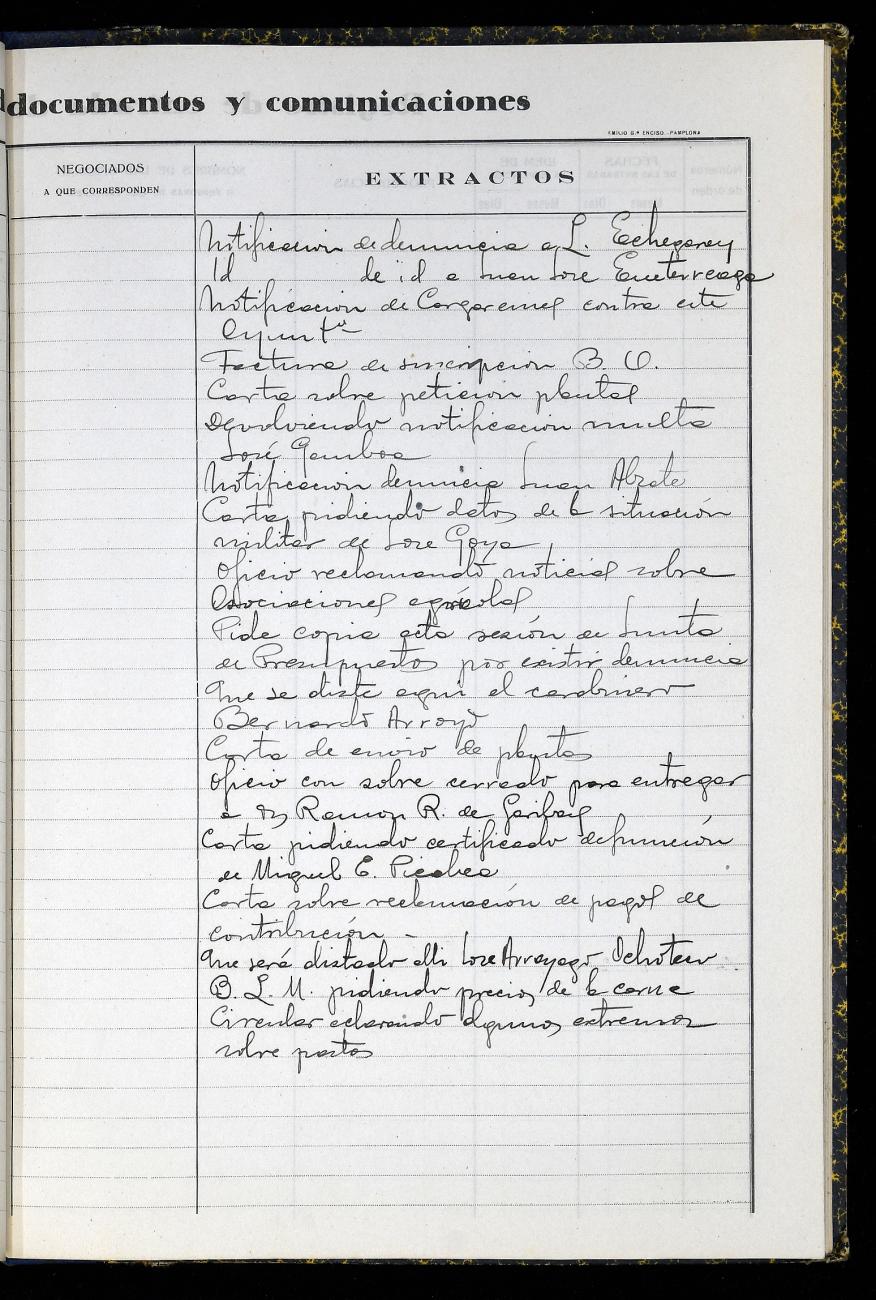 documentos y comunicaciones
EMILIO G.ª ENCISO.-PAMPLONA
NEGOCIADOS
A QUE CORRESPONDEN
EXTRACTOS
Notificacion de denuncia a L. Echegaray
Id de id a Juan Jose
Notificacion de contra este
Ayuntº
Factura de suscripcion B. O.
Carta sobre peticion plantas
Devolviendo notificacion multa
José Gamboa
Notificacion denuncia Juan Alzate
Carta pidiendo datos de la situación
militar de Jose Goya
Oficio reclamando noticias sobre
Asociaciones agrícolas
Pide copia acta sesión de Junta
de Presupuestos por existir denuncia
Que se aliste aqui el carabinero
Bernardo Arroyo
Carta de envio de plantas
Oficio con sobre cerrado para entregar
a Dn Ramon R. de Garibay
Carta pidiendo certificado defunción
de Miguel E. Picabea
Carta sobre reclamación de pagos de
contribución -
Que será alistado alli Jose Arroyago Ochoteco
B. L. M. pidiendo precios de la carne
Circular aclarando algunos extremos
sobre pastos